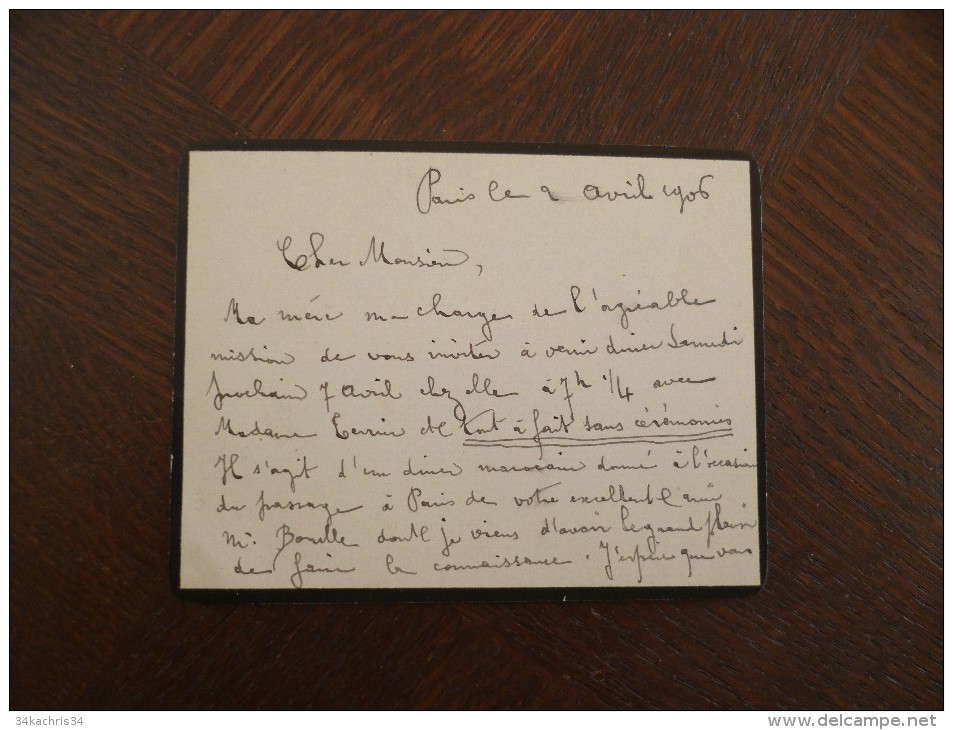 Paris le 2 avril 1906
Cher Monsieur,
Ma mère me charge de l'agréable
mission de vous inviter à venir diner Samedi
prochain 7 avril chez elle à 7h 1/4 avec
Madame et tout à fait sans cérémonies
Il s'agit d'un diner marocain donné à l'occasion
du passage à Paris de votre excellent ami
Mr. dont je viens d'avoir le grand plaisir
de faire la connaissance. J'espère que vous
34kachris34
www.delcampe.net